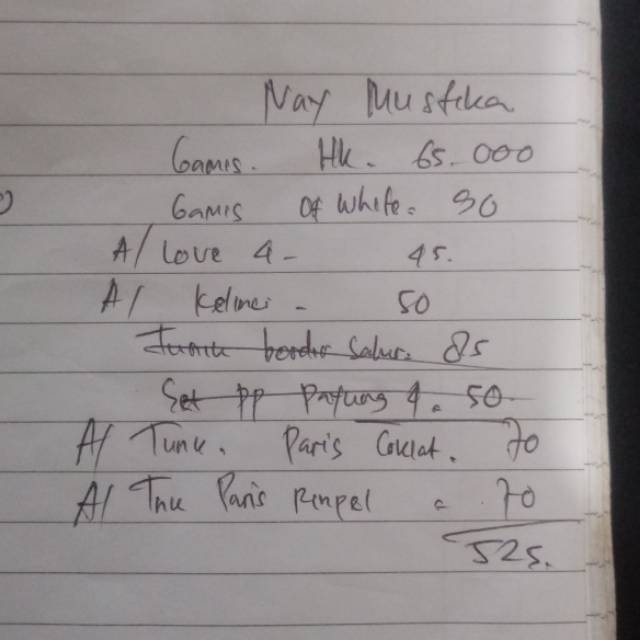 Nay Mustika
Gamis. Hk. 65.000
Gamis Of White. 90
A/ Love 4 - 45.
A/ Kelinci - 50
Tunik bordir Sabur. 85
Set pp Payung 4. 50
A/ Tunk. Paris Coklat. 70
A/ Tnk Paris Rempel = 70
525.